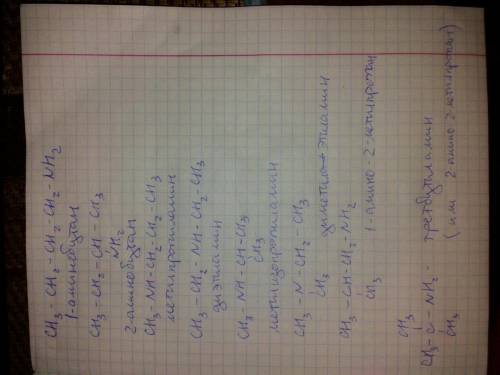 CH₃-CH₂-CH₂-CH₂-NH₂
1-аминобутан
CH₃-CH₂-CH-CH₃
NH₂
2-аминобутан
CH₃-NH-CH₂-CH₂-CH₃
метилпропиламин
CH₃-CH₂-NH-CH₂-CH₃
диэтиламин
CH₃-NH-CH-CH₃
CH₃
метилизопропиламин
CH₃-N-CH₂-CH₃
CH₃ диметил этиламин
CH₃-CH-CH₂-NH₂
CH₃ 1-амино-2-метилпропан
CH₃
CH₃-C-NH₂- третбутиламин
CH₃ (или 2-амино-2-метилпропан)